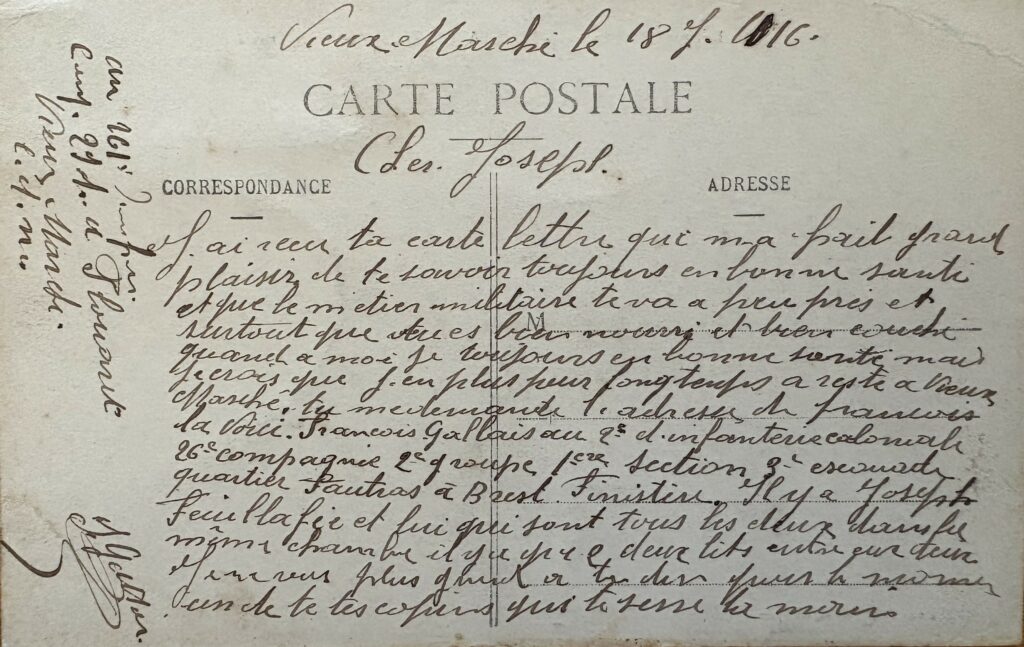 Vieux Marché le 18 7. 1916.
CARTE POSTALE
Cher Joseph.
CORRESPONDANCE
ADRESSE
J'ai recu ta carte lettre qui ma fait grand
plaisir de te savoir toujours en bonne santé
et que le métier militaire te va a peu près et
surtout que tu es bien nourri et bien couché
quand a moi je toujours en bonne santé mais
je crois que j'en plus peur longtemps a resté a Vieux
Marché. tu me demande l'adresse de francois
la voici. Francois Gallais au 2e d'infanterie coloniale
26e compagnie 2e groupe 1ere section 3e escouade
quartier Fautras à Brest. Finistère. Il y a Joseph
Feuillafie et lui qui sont tous les deux dans la
même chambre il y a que 2 deux lits entre eux deux
Je ne vois plus grand a te dire pour le moment
un de te tes copins qui te serre la main
au 161e
21e
Plouaret
Vieux Marché.
C. d. N.